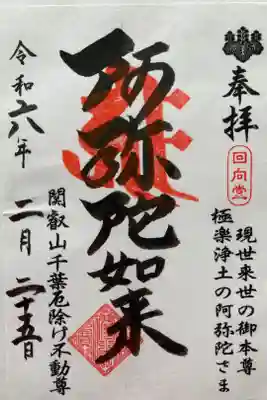 奉拝
回向堂
現世来世の御本尊
極楽浄土の阿弥陀さま
阿弥陀如来
関叡山千葉厄除け不動尊
令和六年
二月二十五日